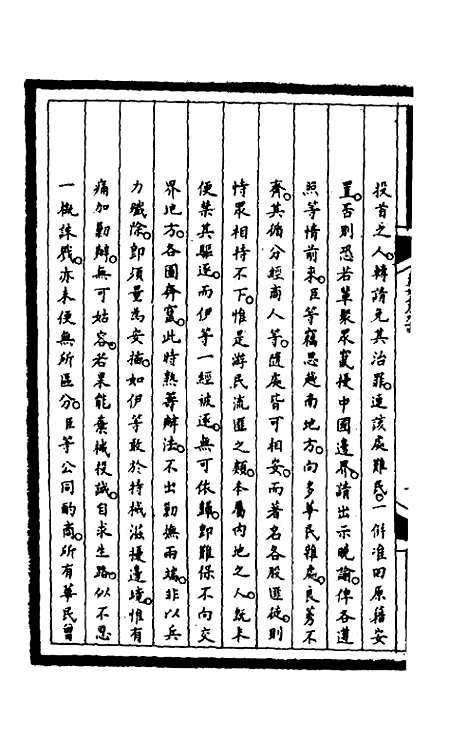 投首之人。轉請免其治罪。連該處難民。一併准回原籍安
置。否則恐若輩聚眾竄擾中國邊界。請出示曉諭。俾各遵
照等情前來。臣等竊思越南地方。向多華民雜處。良莠不
齊。其循分經商人等。隨處皆可相安。而著名各股匪徒。則
恃眾相持不下。惟是游民流匪之類。本屬內地之人。既未
便禁其驅逐。而伊等一經被逐。無可依歸。即難保不向交
界地方。各圖奔竄。此時熟籌辦法。不出勦撫兩端。非以兵
力殲除。即須量為安插。如伊等敢於恃械滋擾邊境。惟有
痛加勦辦。無可姑容。若果能棄械投誠。自求生路。似不忍
一概誅戮。亦未便無所區分。臣等公同酌商。所有華民曾